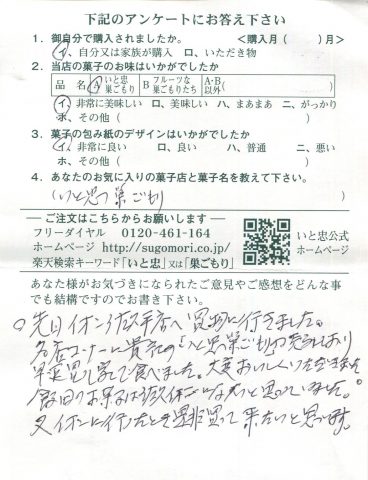 下記のアンケートにお答え下さい
1. 御自分で購入されましたか。 <購入月( )月>
イ、自分又は家族が購入 ロ、いただき物
2. 当店の菓子のお味はいかがでしたか
品名 A いと忠巣ごもり B フルーツな巣ごもりたち A・B以外( )
イ、非常に美味しい ロ、美味しい ハ、まあまあ ニ、がっかり
ホ、その他( )
3. 菓子の包み紙のデザインはいかがでしたか
イ、非常に良い ロ、良い ハ、普通 ニ、悪い
ホ、その他( )
4. あなたのお気に入りの菓子店と菓子名を教えて下さい。
(いと忠 巣ごもり )
ご注文はこちらからお願いします
フリーダイヤル 0120-461-164
ホームページ http://sugomori.co.jp/
楽天検索キーワード「いと忠」又は「巣ごもり」
いと忠公式
ホームページ
あなた様がお気づきになられたご意見やご感想をどんな事
でも結構ですのでお書き下さい。
先日イオン 店へ買物に行きました。
名店コーナーに貴 の「いと忠巣ごもり」が売られており
早速買い家で食べました。大変おいしくいただきました
飯田のお菓子は と思っていました。
又イオンに行ったとき是非買って来たいと思います。